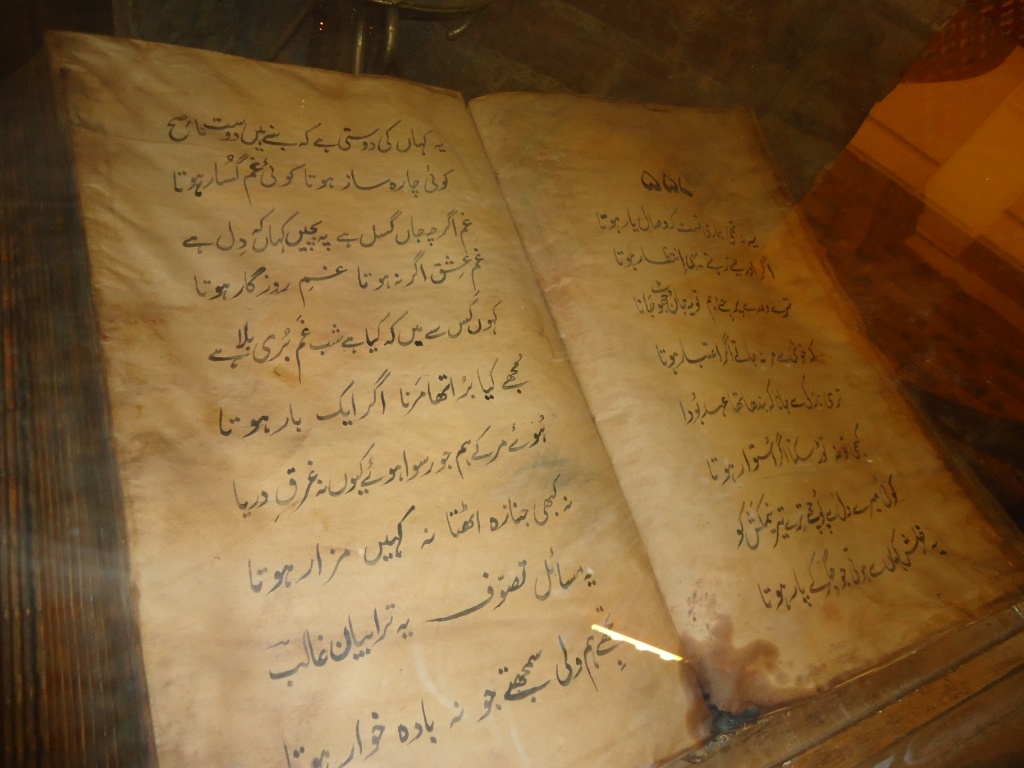 ۵۵۸
یہ نہ تھی ہماری قسمت کہ وصال یار ہوتا
اگر اور جیتے رہتے یہی انتظار ہوتا
ترے وعدے پر جیے ہم تو یہ جان جھوٹ جانا
کہ خوشی سے مر نہ جاتے اگر اعتبار ہوتا
تری نازکی سے جانا کہ بندھا تھا عہد بُودا
کبھی تو نہ توڑ سکتا اگر اُستوار ہوتا
کوئی میرے دل سے پُوچھے ترے تیر نیمکش کو
یہ خلش کہاں سے ہوتی جو جگر کے پار ہوتا
یہ کہاں کی دوستی ہے کہ بنے ہیں دوست ناصح
کوئی چارہ ساز ہوتا کوئی غم گسُار ہوتا
غم اگرچہ جاں گسل ہے پہ بچیں کہاں کہ دِل ہے
غمِ عِشق اگر نہ ہوتا غمِ روزگار ہوتا
کہوں کس سے میں کہ کیا ہے شب غم بُری بلا ہے
مجھے کیا بُرا تھا مَرنا اگر ایک بار ہوتا
ہُوئے مر کے ہم جو رسوا ہوئے کیوں نہ غرقِ دریا
نہ کبھی جنازہ اٹھتا نہ کہیں مزار ہوتا
یہ مسائل تصوّف یہ ترا بیان غالبؔ
تجھے ہم ولی سمجھتے جو نہ بادہ خوار ہوتا